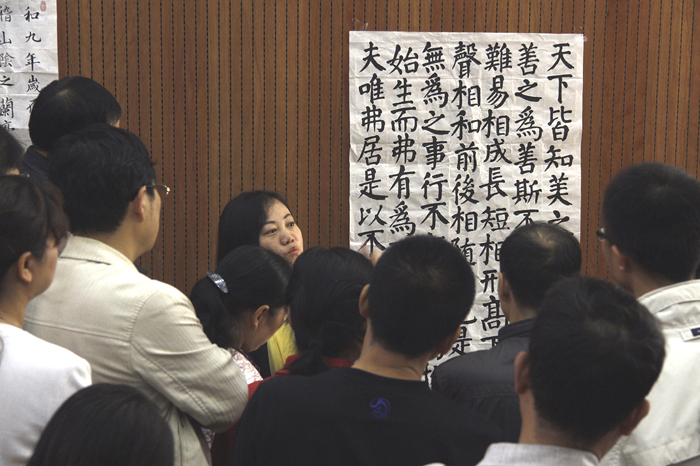 天下皆知美之
善之為善斯不
難易相成長短相刑髙
聲相和前後相随
是
無為之事行不
始生而弗有為
夫唯弗居是以不
和九年歲
稽山陰之蘭